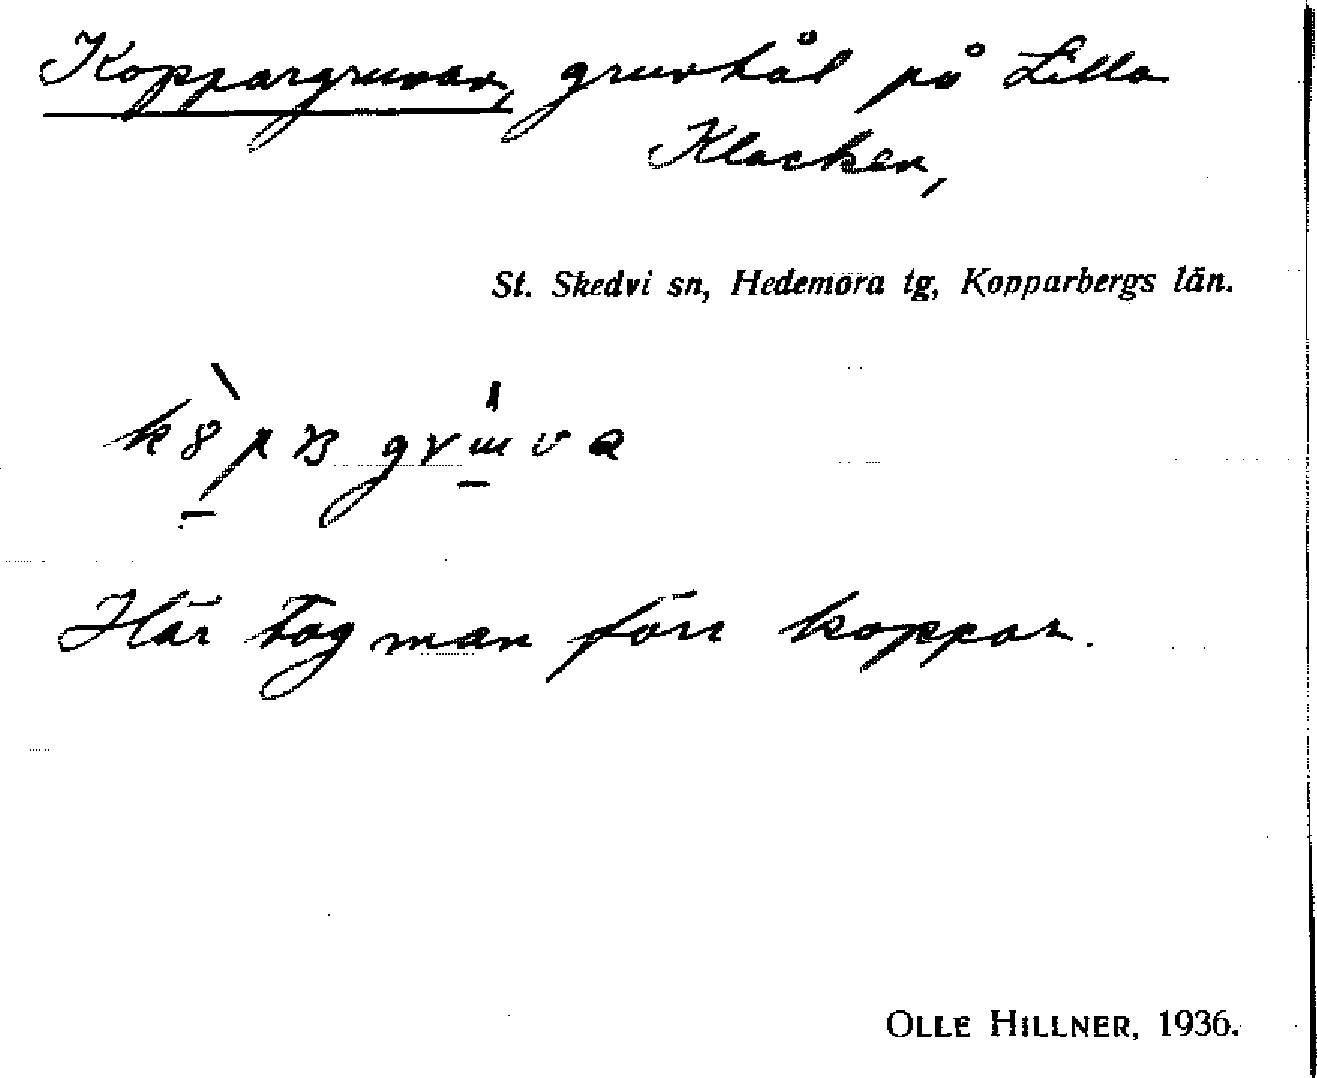 Koppargruvan, gruvhål på Lilla
Klacken,
St. Skedvi sn, Hedemora tg, Kopparbergs län.
Här tog man förr koppar.
OLLE HILLNER, 1936.